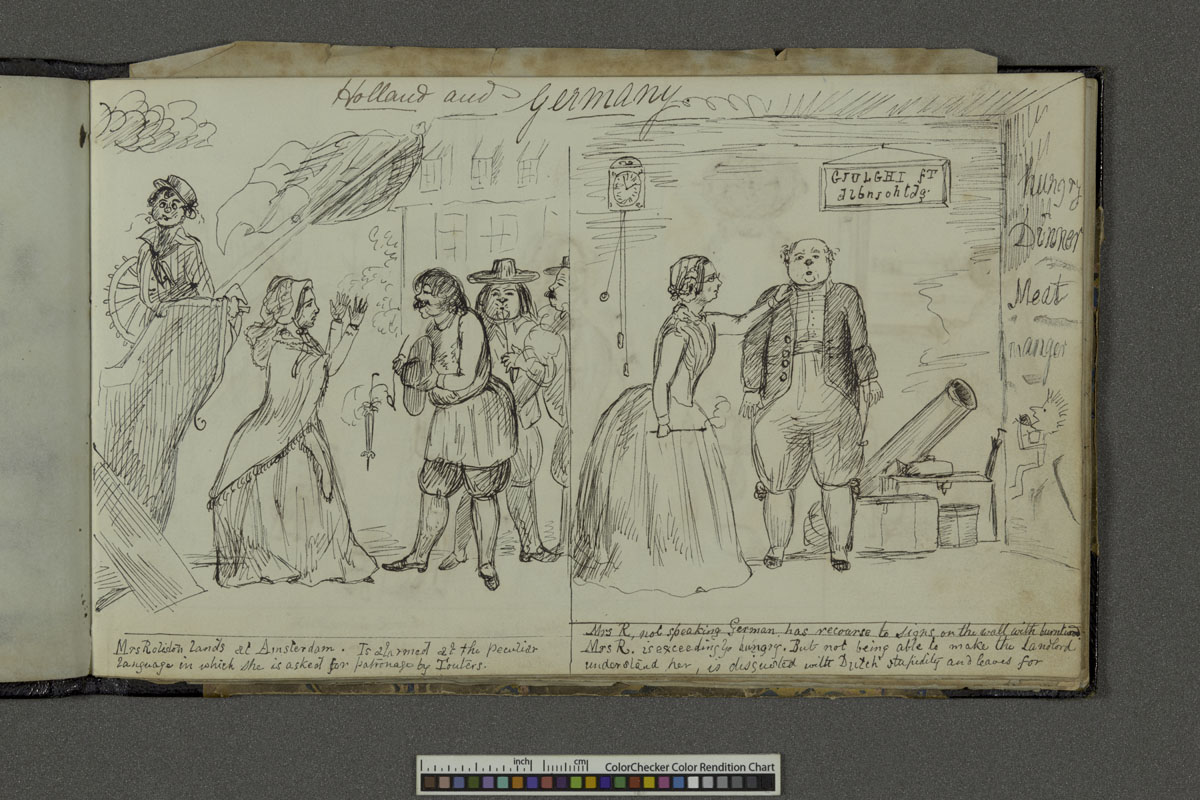 Holland and Germany.
GJULGHI fT
dibnschtdg
hungry
Dinner
Meat
manger
Mrs Rolidon lands at Amsterdam. Is alarmed at the peculiar
language in which she is asked for patronage by Touters.
Mrs R, not speaking German, has recourse to signs on the wall with burnt
Mrs R. is exceedingly hungry. But not being able to make the landlord
understand her, is disgusted with Dutch stupidity and leaves for
inch
cm
ColorChecker Color Rendition Chart